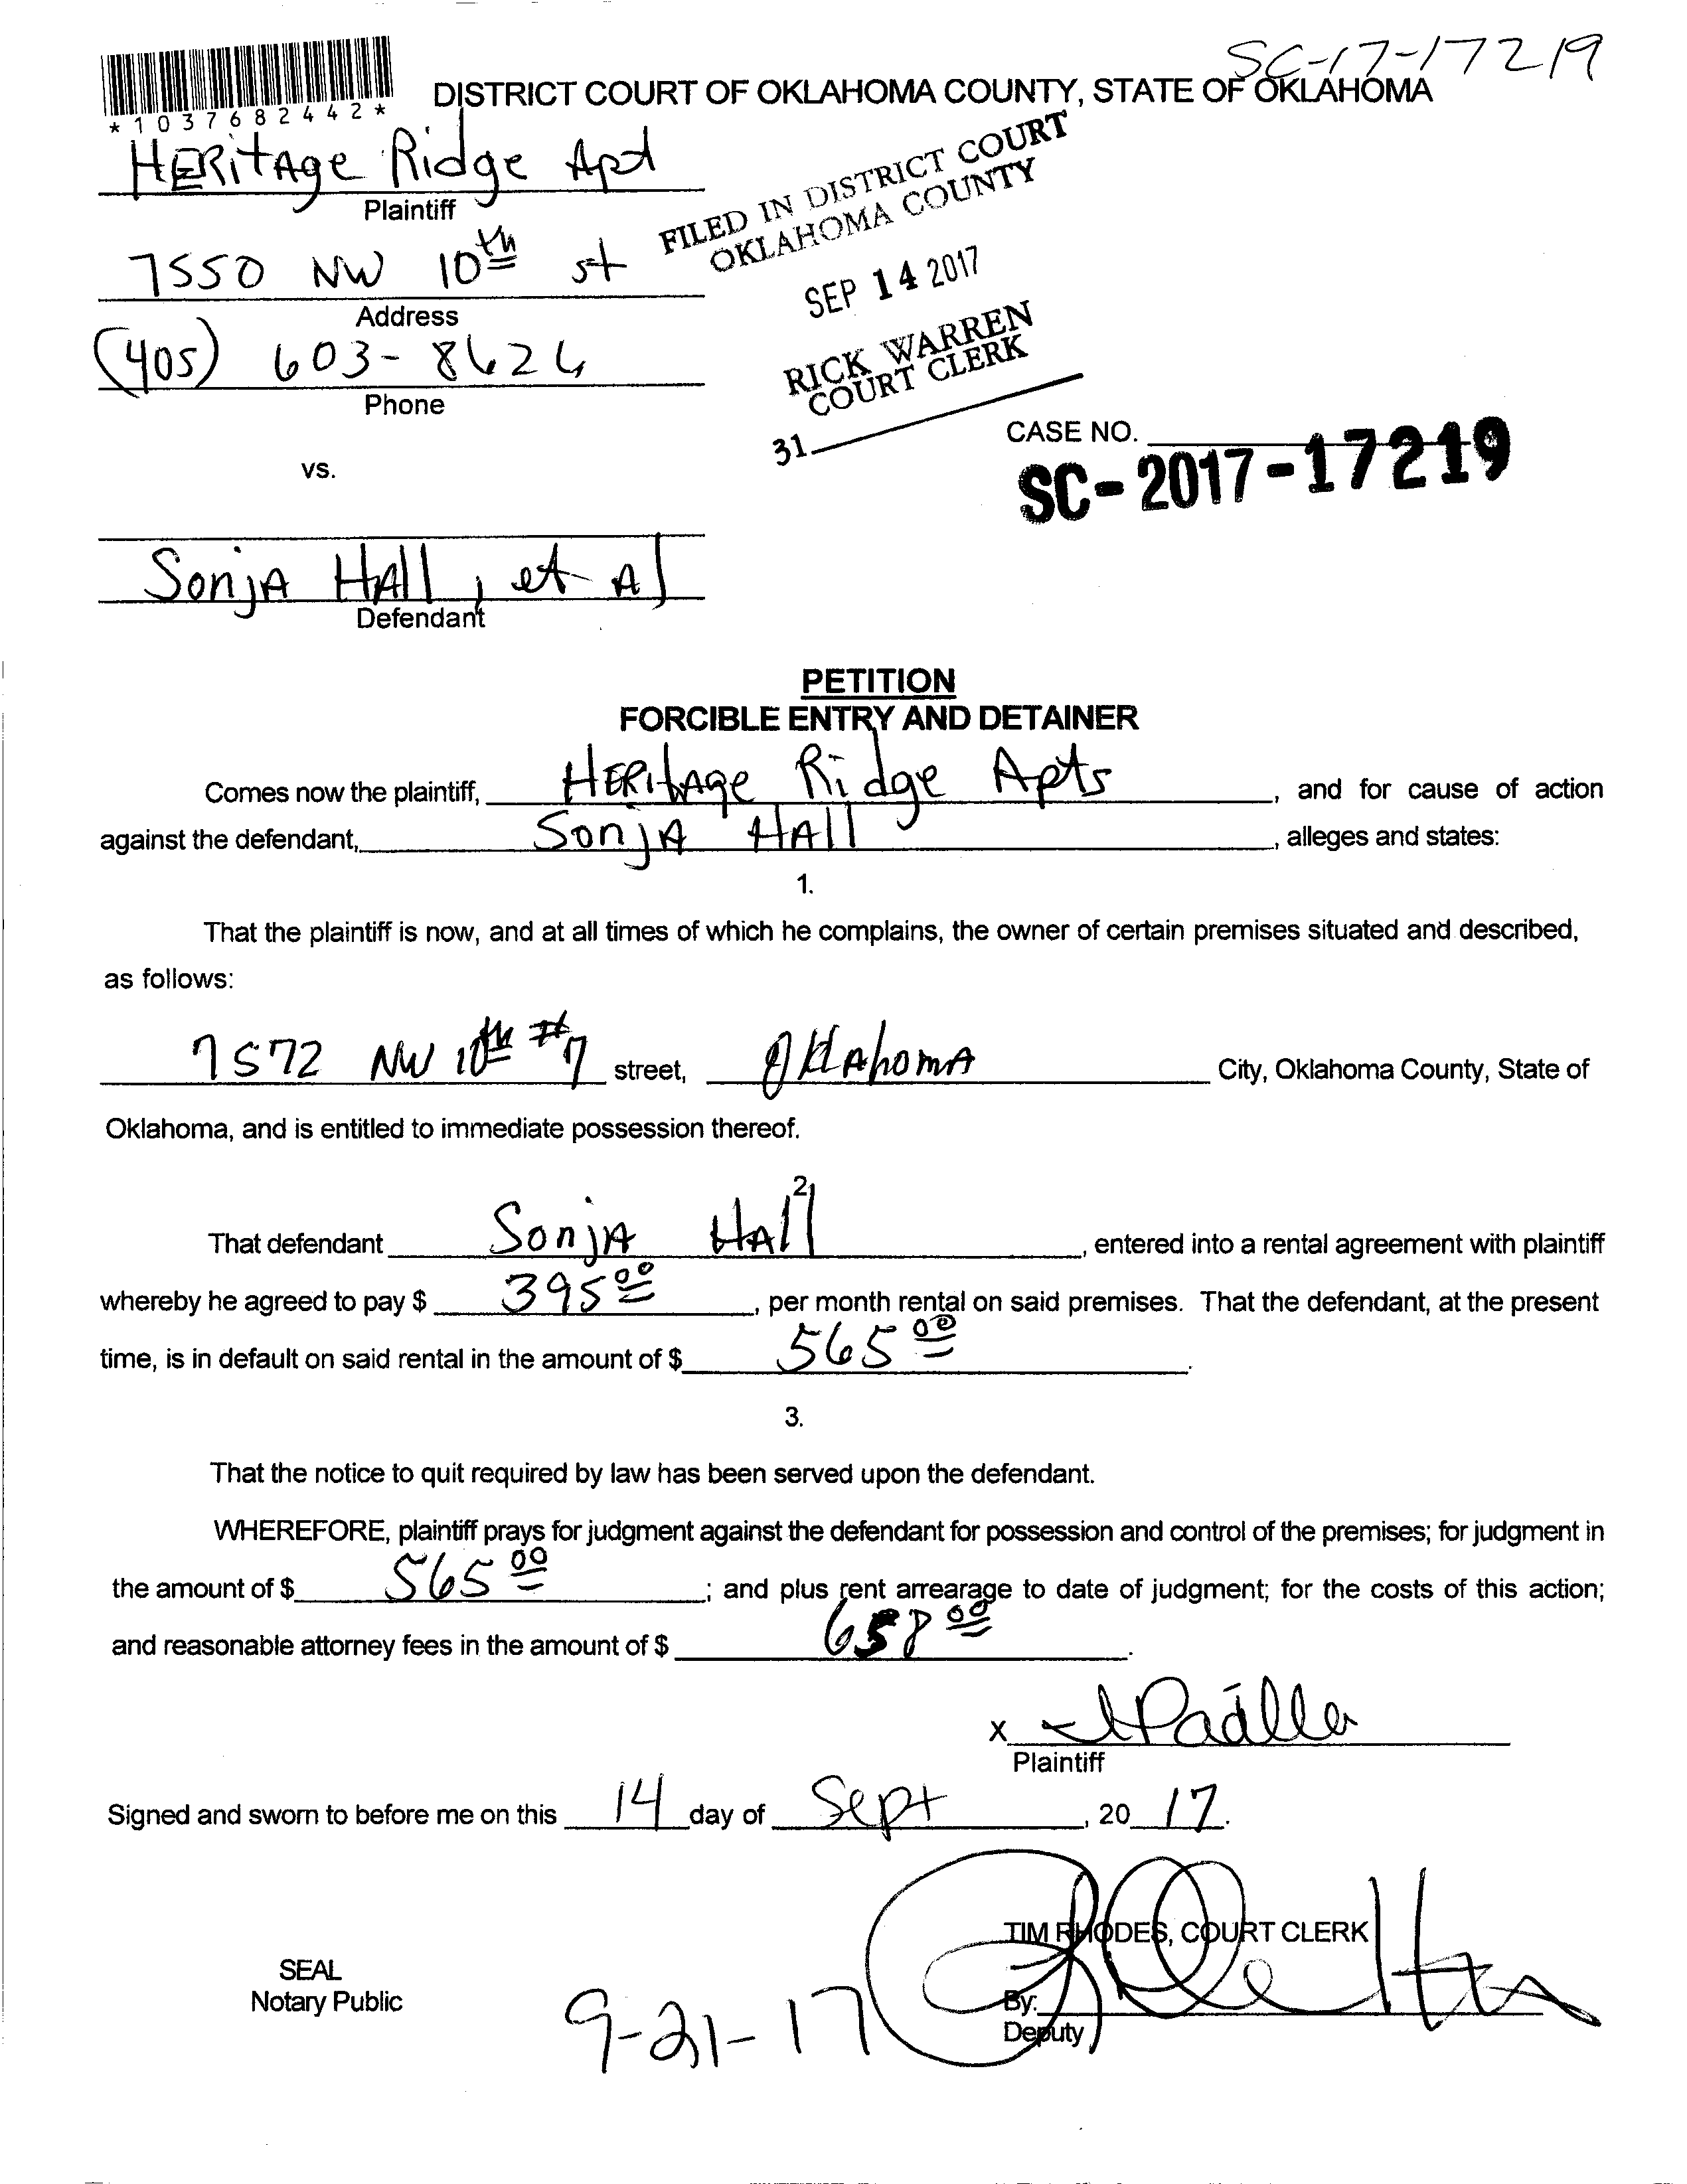 SC-17-17219
*1037682442*
DISTRICT COURT OF OKLAHOMA COUNTY, STATE OF OKLAHOMA
HERitAge Ridge Apt
Plaintiff
FILED IN DISTRICT COURT
OKLAHOMA COUNTY
7550 NW 10th st
Address
SEP 14 2017
(405) 603-8626
Phone
RICK WARREN
COURT CLERK
31
CASE NO.
SC-2017-17219
vs.
SonjA HAll, et Al
Defendant
PETITION
FORCIBLE ENTRY AND DETAINER
Comes now the plaintiff, HERitAge Ridge Apts, and for cause of action
against the defendant, SonjA HAll, alleges and states:
1.
That the plaintiff is now, and at all times of which he complains, the owner of certain premises situated and described,
as follows:
7572 NW 10th #7 street, OklAhomA City, Oklahoma County, State of
Oklahoma, and is entitled to immediate possession thereof.
2.
That defendant SonjA HAll, entered into a rental agreement with plaintiff
whereby he agreed to pay $ 395 00, per month rental on said premises. That the defendant, at the present
time, is in default on said rental in the amount of $ 565 00.
3.
That the notice to quit required by law has been served upon the defendant.
WHEREFORE, plaintiff prays for judgment against the defendant for possession and control of the premises; for judgment in
the amount of $ 565 00; and plus rent arrearage to date of judgment; for the costs of this action;
and reasonable attorney fees in the amount of $ 658 00.
X
Plaintiff
Signed and sworn to before me on this 14 day of Sept, 20 17.
TIM RHODES, COURT CLERK
SEAL
Notary Public
By:
Deputy
9-21-17